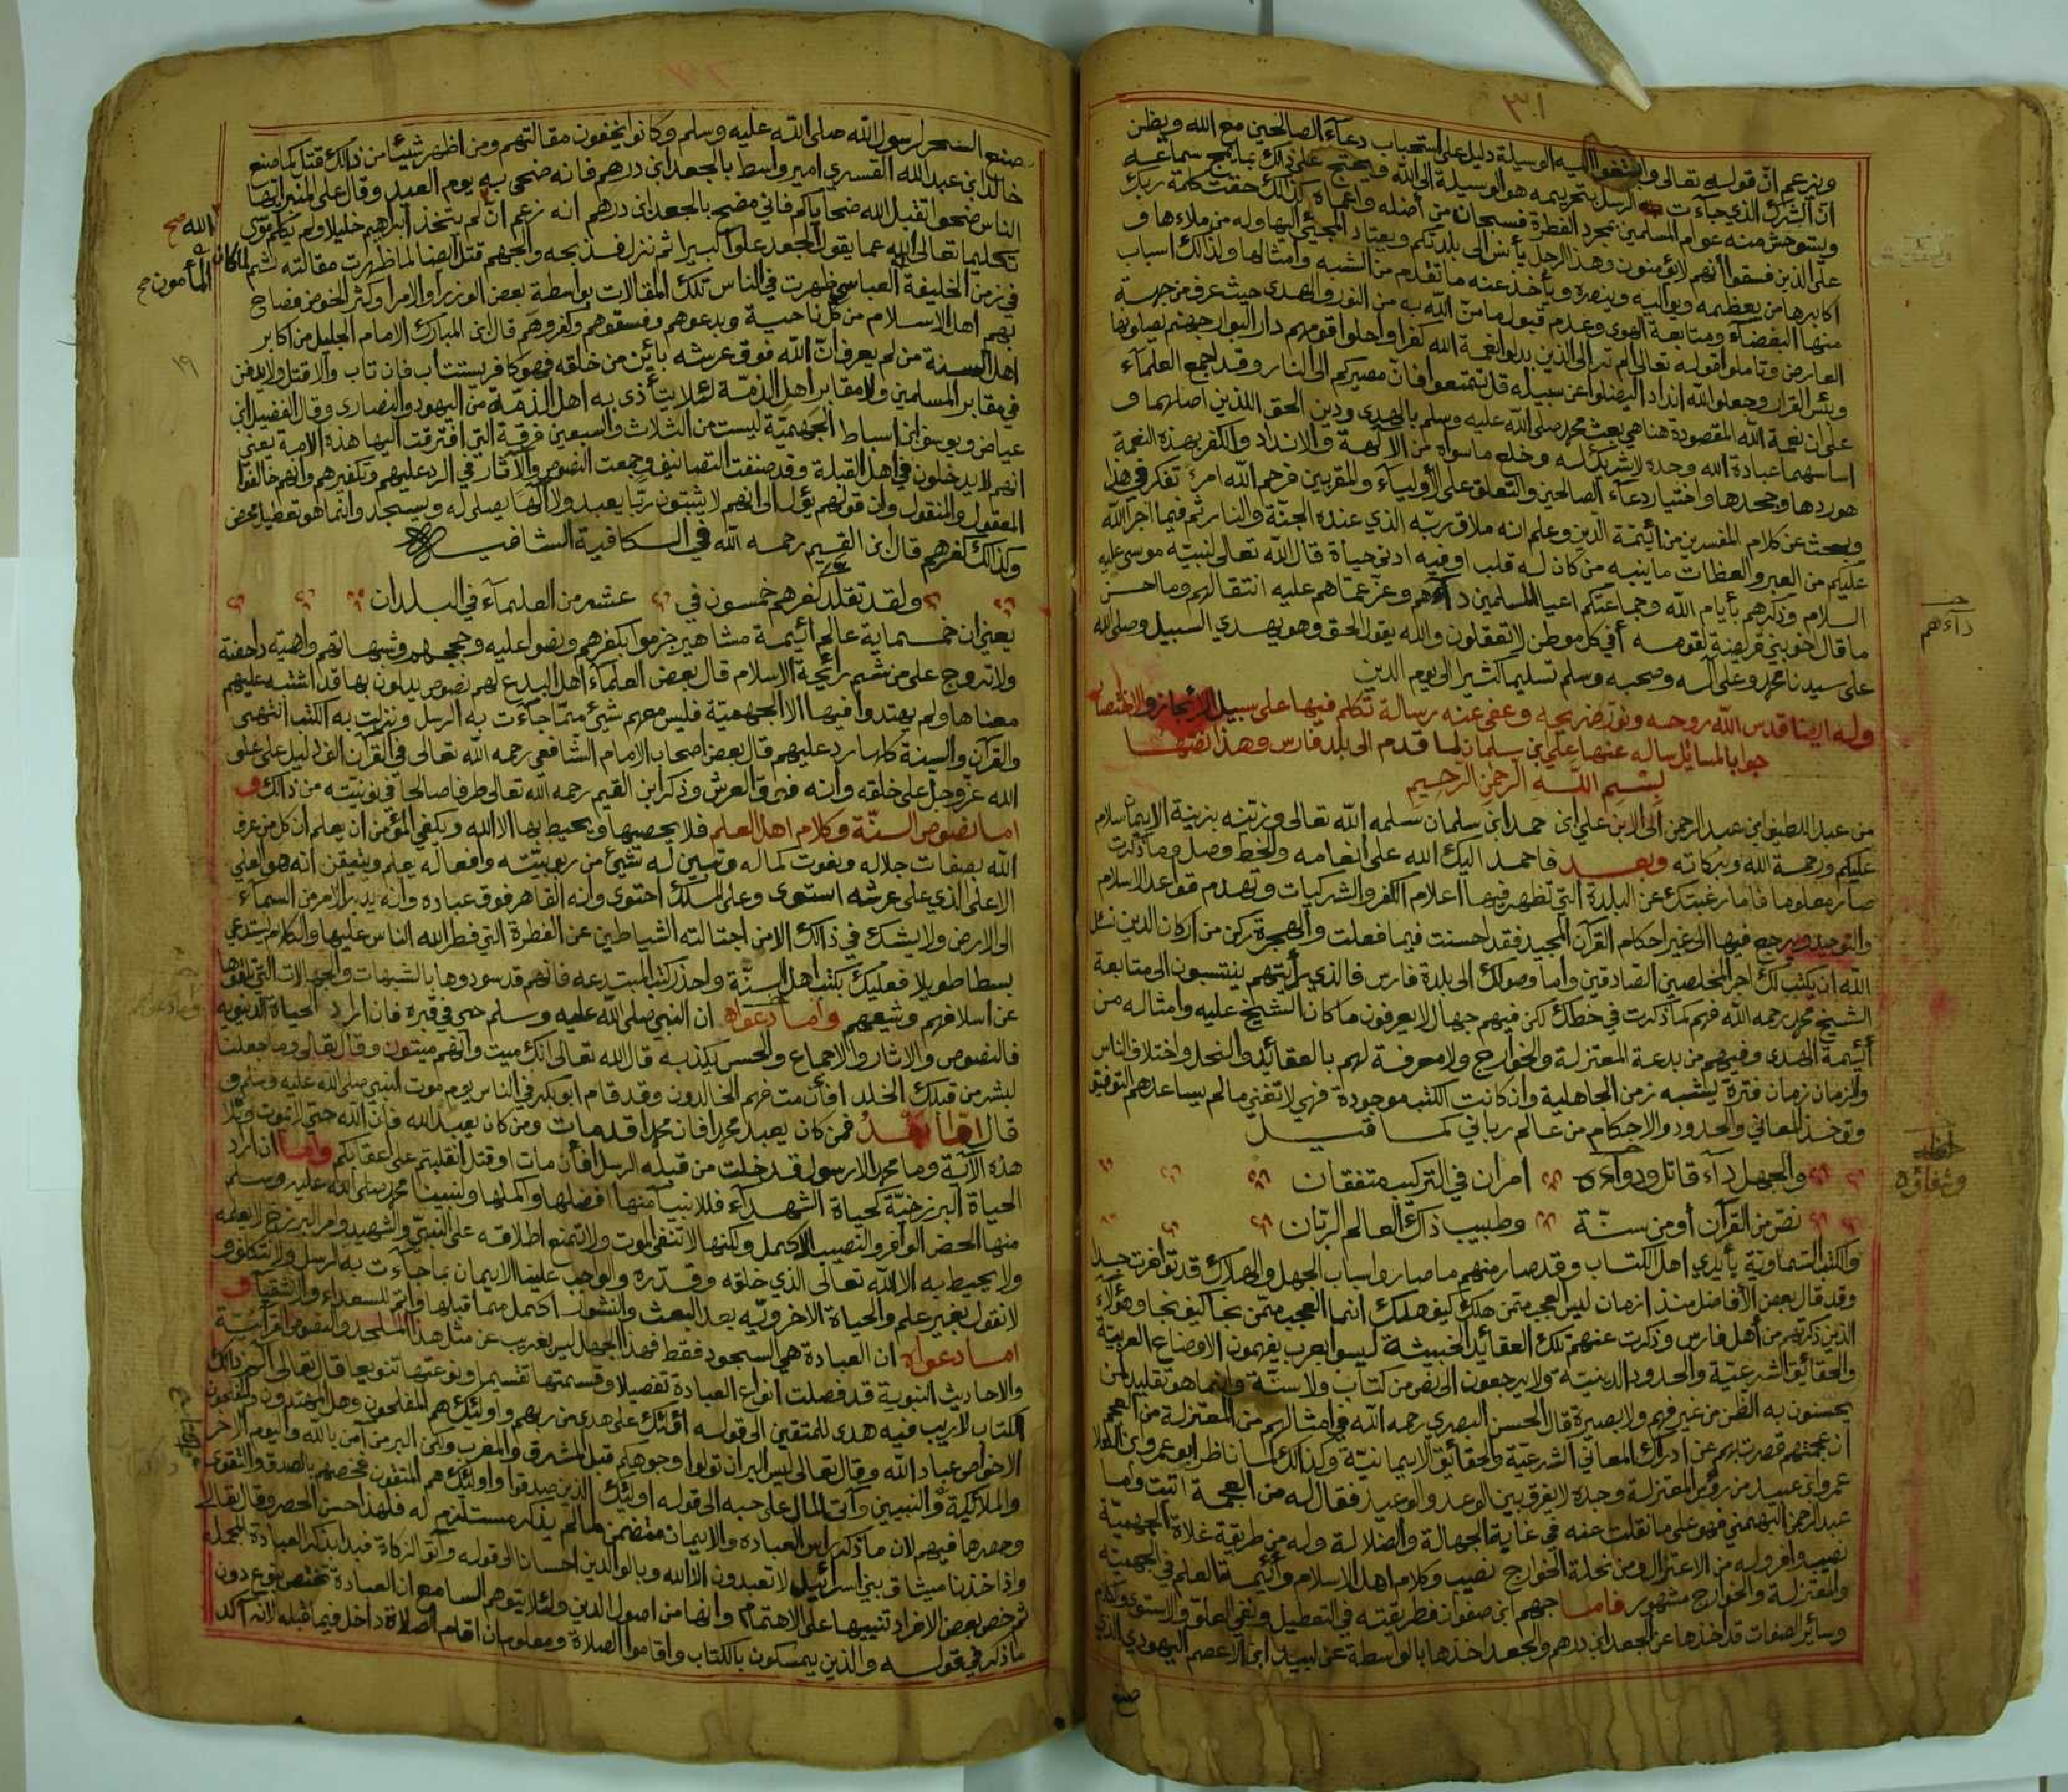 ٣٠١
ويزعم ان قوله تعالى وابتغوا اليه الوسيلة دليل على استحباب دعاء الصالحين مع الله ويظن
ان الشرك الذي جاءت الرسل بتحريمه هو الوسيلة الى الله ويحتج على ذلك بما يمج سماعه
ويستوحش منه عوام المسلمين بمجرد الفطرة فسبحان من أضله وأعماه كذلك حقت كلمة ربك
على الذين فسقوا انهم لا يؤمنون وهذا الرجل يأنس الى بلدتكم ويعتاد المجيئ اليها وله من ملاءها و
اكابرها من يعظمه ويواليه وينصره ويأخذ عنه ما تقدم من الشبه وامثالها ولذلك اسباب
منها البغضاء ومتابعة الهوى وعدم قبول ما من الله به من النور والهدى حيث عرف من جهة
العارض وتأملوا قوله تعالى الم تر الى الذين بدلوا نعمة الله كفرا واحلوا قومهم دار البوار جهنم يصلونها
وبئس القرار وجعلوا لله اندادا ليضلوا عن سبيله قل تمتعوا فان مصيركم الى النار وقد اجمع العلماء
على ان نعمة الله المقصودة هنا هي بعث محمد صلى الله عليه وسلم بالهدى ودين الحق اللذين اصلهما و
اساسهما عبادة الله وحده لا شريك له وخلع ما سواه من الآلهة والانداد والكفر بهذه النعمة
هو ردها وجحدها واختيار دعاء الصالحين والتعلق على الأولياء والمقربين فرحم الله امرئ تفكر في هذا
وبحث عن كلام المفسرين من أئيمة الدين وعلم انه ملاق ربه الذي عنده الجنة والنار ثم فيما اجرا الله
عليكم من العبر والعظات ما ينبه من كان له قلب او فيه ادنى حياة قال الله تعالى لنبيه موسى عليه
السلام وذكرهم بأيام الله وجماعتكم اعيا المسلمين داءهم وعز عما هم عليه انتقالهم وما احسن
ما قال اخو بني قريضة لقومه أفي كل موطن لا تعقلون والله يقول الحق وهو يهدي السبيل وصلى الله
على سيدنا محمد وعلى آله وصحبه وسلم تسليما كثيرا الى يوم الدين
وله ايضا قدس الله روحه ونور ضريحه وعفى عنه رسالة تكلم فيها على سبيل الايجاز والاختصار
جوابا لمسائل ساله عنها علي ابن سلمان لما قدم الى بلد فارس وهذا نصها
بسم الله الرحمن الرحيم
من عبد اللطيف ابن عبد الرحمن الى الابن علي ابن حمد ابن سلمان سلمه الله تعالى وزينه بزينة الايمان سلام
عليكم ورحمة الله وبركاته وبعد فاحمد اليك الله على انعامه والخط وصل وما ذكرت
صار معلوما فاما رغبتك عن البلدة التي تظهر فيها اعلام الكفر والشركيات وتهدم قواعد الاسلام
والتوحيد ويرجع فيها الى غير احكام القرآن المجيد فقد احسنت فيما فعلت والهجرة ركن من اركان الدين نسئل
الله ان يكتب لك اجر المخلصين الصادقين واما وصولك الى بلدة فارس فالذي رأيتهم ينتسبون الى متابعة
الشيخ محمد رحمه الله فهم كما ذكرت في خطك لكن فيهم جهال لا يعرفون ما كان الشيخ عليه وامثاله من
أئيمة الهدى وفيهم من بدعة المعتزلة والخوارج ولا معرفة لهم بالعقائد والنحل واختلاف الناس
والزمان زمان فترة يشبه زمن الجاهلية وان كانت الكتب موجودة فهي لا تغني ما لم يساعدهم التوفيق
وتؤخذ المعاني والحدود والاحكام من عالم رباني كما قيل
والجهل داء قاتل ودواءه امران في التركيب متفقان
نص من القرآن أو من سنة وطبيب ذاك العالم الربان
والكتب السماوية بأيدي اهل الكتاب وقد صار منهم ما صار واسباب الجهل والهلاك قد توافرت جدا
وقد قال بعض الأفاضل منذ ازمان ليس العجب ممن هلك كيف هلك انما العجب ممن نجا كيف نجا وهؤلاء
الذين ذكرتهم من أهل فارس وذكرت عنهم تلك العقائد الخبيثة ليسوا بعرب يفهمون الاوضاع العربية
والحقائق الشرعية والحدود الدينية ولا يرجعون الى نص من كتاب ولا سنة وانما هو تقليد لمن
يحسنون به الظن من غير فهم ولا بصيرة قال الحسن البصري رحمه الله في امثالهم من المعتزلة من العجم
ان عجمتهم قصرت بهم عن ادراك المعاني الشرعية والحقائق الايمانية وكذلك لما ناظر ابو عمرو بن العلا
عمرو ابن عبيد من رؤس المعتزلة وجده لا يفرق بين الوعد والوعيد فقال له من العجمة اتيت واما
عبد الرحمن البهمني فهو على ما نقلت عنه في غاية الجهالة والضلالة وله من طريقة غلاة الجهمية
نصيب وافر وله من الاعتزال ومن نحلة الخوارج نصيب وكلام اهل الاسلام وأئيمة العلم في الجهمية
والمعتزلة والخوارج مشهور فاما جهم ابن صفوان فطريقته في التعطيل ونفي العلو والاستوى وكلام
وسائر الصفات قد اخذها عن الجعد ابن درهم والجعد اخذها بالواسطة عن لبيد ابن الاعصم اليهودي الذي
صنع
داءهم
وشفاؤه
صنع السحر لرسول الله صلى الله عليه وسلم وكانوا يخفون مقالتهم ومن اظهر شيئا من ذلك قتل كما صنع
خالد ابن عبد الله القسري امير واسط بالجعد ابن درهم فانه ضحى به يوم العيد وقال على المنبر ايها
الناس ضحوا تقبل الله ضحاياكم فاني مضح بالجعد ابن درهم انه زعم ان لم يتخذ ابراهيم خليلا ولم يكلم موسى
تكليما تعالى الله عما يقول الجعد علوا كبيرا ثم نزل فذبحه والجهم قتل ايضا لما ظهرت مقالته ثم لما كان
في زمن الخليفة العباسي ظهرت في الناس تلك المقالات بواسطة بعض الوزراء والامرا وكثر الخوض فصاح
بهم اهل الاسلام من كل ناحية وبدعوهم وفسقوهم وكفروهم قال ابن المبارك الامام الجليل من اكابر
اهل السنة من لم يعرف ان الله فوق عرشه بائن من خلقه فهو كافر يستتاب فان تاب والا قتل ولا يدفن
في مقابر المسلمين ولا مقابر اهل الذمة لئلا يتأذى به اهل الذمة من اليهود والنصارى وقال الفضيل ابن
عياض ويوسف ابن اسباط الجهمية ليست من الثلاث والسبعين فرقة التي افترقت اليها هذه الامة يعني
انهم لا يدخلون في اهل القبلة وقد صنفت التصانيف وجمعت النصوص والآثار في الرد عليهم وتكفيرهم وانهم خالفوا
المعقول والمنقول وان قولهم يؤل الى انهم لا يثبتون ربا يعبد ولا الها يصلى له ويسجد وانما هو تعطيل محض
وكذلك كفرهم قال ابن القيم رحمه الله في الكافية الشافية
ولقد تقلد كفرهم خمسون في عشر من العلماء في البلدان
يعني ان خمسماية عالم أئيمة مشاهير جزموا بكفرهم ونصوا عليه وحججهم وشبهاتهم واهية داحضة
ولا تروج على من شم رائحة الاسلام قال بعض العلماء اهل البدع لهم نصوص يدلون بها قد اشتبه عليهم
معناها ولم يهتدوا فيها الا الجهمية فليس معهم شيئ مما جاءت به الرسل ونزلت به الكتب انتهى
والقرآن والسنة كلها رد عليهم قال بعض اصحاب الامام الشافعي رحمه الله تعالى في القرآن الف دليل على علو
الله عز وجل على خلقه وانه فوق العرش وذكر ابن القيم رحمه الله تعالى طرفا صالحا في نونيته من ذلك و
اما نصوص السنة وكلام اهل العلم فلا يحصيها ويحيط بها الا الله ويكفي المؤمن ان يعلم ان كل من عرف
الله بصفات جلاله ونعوت كماله وتبين له شيئ من ربوبيته وافعاله يعلم ويتيقن أنه هو العلي
الاعلى الذي على عرشه استوى وعلى الملك احتوى وانه القاهر فوق عباده وانه يدبر الامر من السماء
الى الارض ولا يشك في ذلك الا من اجتالته الشياطين عن الفطرة التي فطر الله الناس عليها والكلام يستدعي
بسطا طويلا فعليك بكتب اهل السنة واحذر كتب المبتدعه فانهم قد سودوها بالشبهات والجهالات التي تلقوها
عن اسلافهم وشيعهم واما دعواه ان النبي صلى الله عليه وسلم حي في قبره فان اراد الحياة الدنيوية
فالنصوص والاثار والاجماع والحس يكذبه قال الله تعالى انك ميت وانهم ميتون وقال تعالى وما جعلنا
لبشر من قبلك الخلد افأن مت فهم الخالدون وقد قام ابو بكر في الناس يوم موت النبي صلى الله عليه وسلم و
قال اما بعد فمن كان يعبد محمدا فان محمدا قد مات ومن كان يعبد الله فان الله حي لا يموت وتلا
هذه الآية وما محمد الا رسول قد خلت من قبله الرسل افأن مات او قتل انقلبتم على اعقابكم واما ان اراد
الحياة البرزخية كحياة الشهداء فللانبياء منها افضلها واكملها ولنبينا محمد صلى الله عليه وسلم
منها الحض الوافر والنصيب الاكمل ولكنها لا تنفي الموت ولا تمنع اطلاقه على النبي والشهيد وامر البرزخ لا يعلمه
ولا يحيط به الا الله تعالى الذي خلقه وقدره والواجب علينا الايمان بما جاءت به الرسل ولا نتكلف و
لا نقول بغير علم والحياة الاخروية بعد البعث والنشور اكمل مما قبلها واتم للسعداء والاشقياء و
اما دعواه ان العبادة هي السجود فقط فهذا الجهل ليس بغريب عن مثل هذا الملحد والنصوص القرآنية
والاحاديث النبوية قد فصلت انواع العبادة تفصيلا وقسمتها تقسيما ونوعتها تنويعا قال تعالى الم ذلك
الكتاب لا ريب فيه هدى للمتقين الى قوله اؤلئك على هدى من ربهم واولئك هم المفلحون وهل المهتدون المفلحون
الا خواص عباد الله وقال تعالى ليس البر ان تولوا وجوهكم قبل المشرق والمغرب ولكن البر من آمن بالله واليوم الآخر
والملائكة والنبيين وآتى المال على حبه الى قوله اولئك الذين صدقوا واولئك هم المتقون فخصهم بالصدق والتقوى
وحصرها فيهم لان ما ذكر راس العباده والايمان متضمن لما لم يذكر مستلزم له فلهذا حسن الحصر وقال تعالى
واذ اخذنا ميثاق بني اسرائيل لا تعبدون الا الله وبالوالدين احسانا الى قوله وآتوا الزكاة فبدا بذكر العبادة المجملة
ثم خص بعض الافراد تنبيها على الاهتمام وانها من اصول الدين ولئلا يتوهم السامع ان العبادة تختص بنوع دون
ما ذكر في قوله والذين يمسكون بالكتاب واقاموا الصلاة ومعلوم ان اقام الصلاة داخل فيما قبله لانه آكد
الله صح
المأمون صح